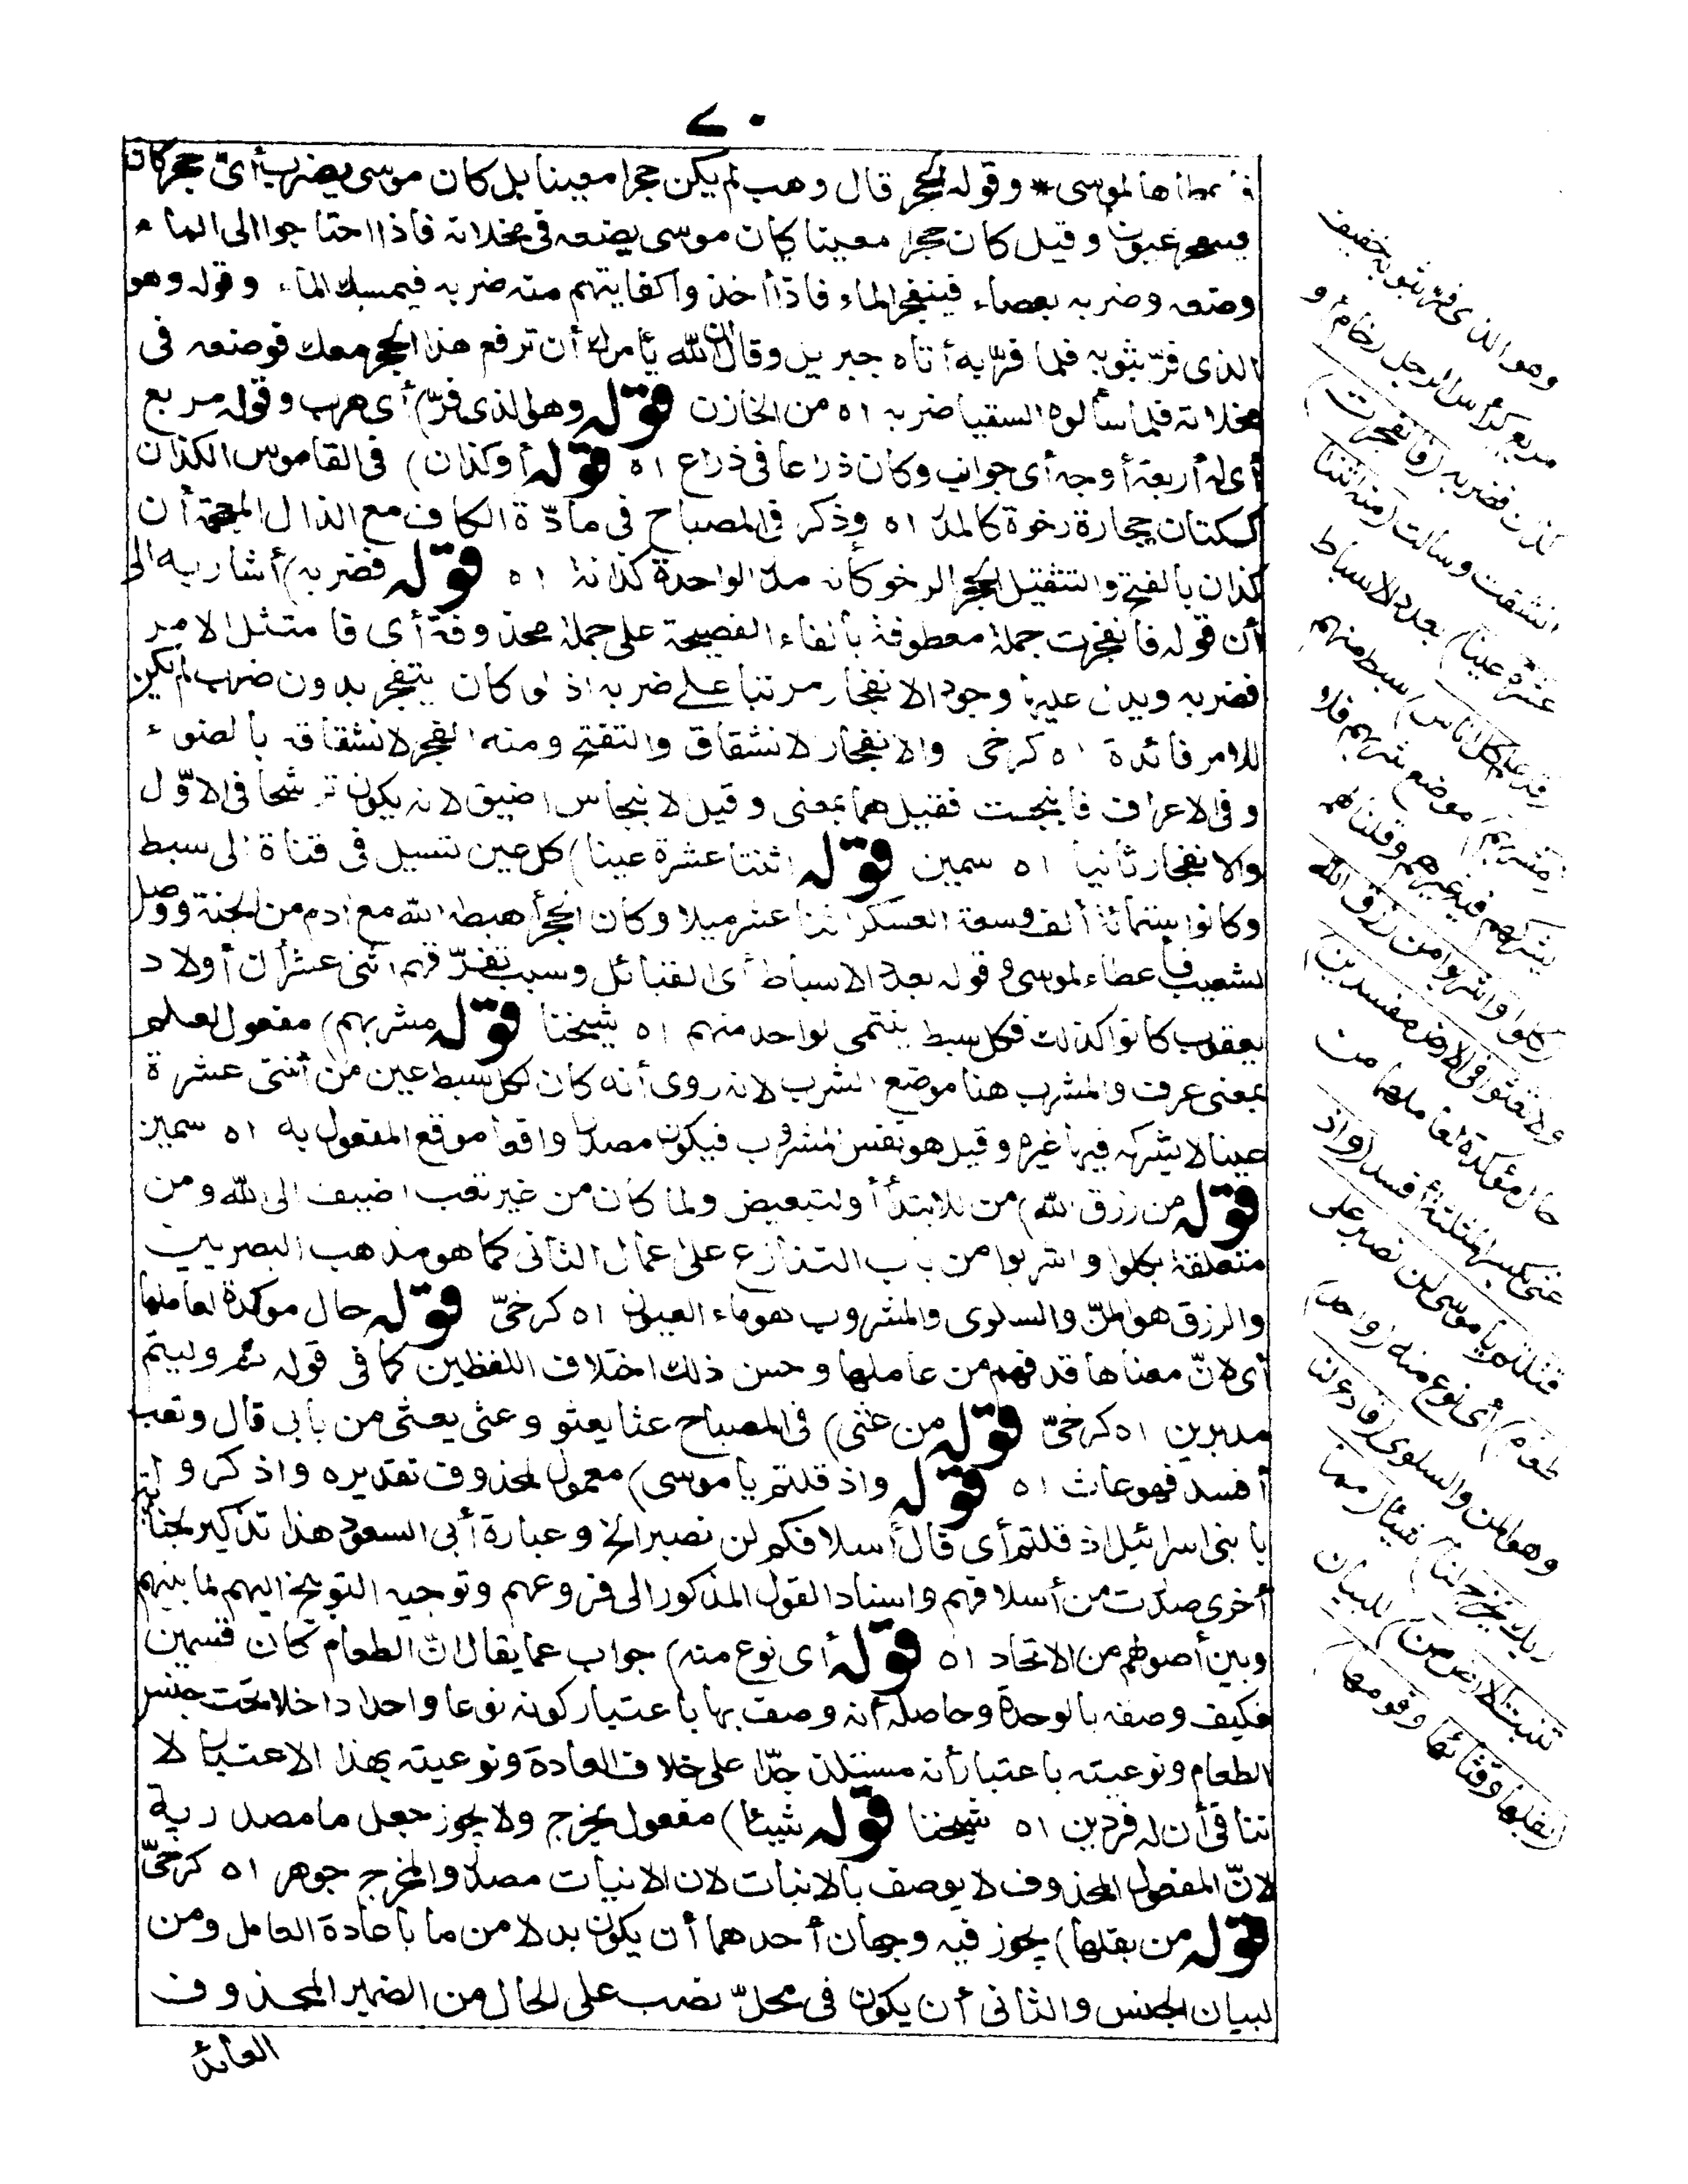 ٧٠
فأعطاها لموسى * وقوله الحجر قال وهب لم يكن حجرا معينا بل كان موسى يضرب أىّ حجر كان
عيون وقيل كان حجرا معينا كان موسى يضعه فى مخلاته فاذا احتاجوا الى الماء
وضعه وضربه بعصاه فينفجر الماء فاذا أخذوا كفايتهم منه ضربه فيمسك الماء وقوله وهو
الذى فرّ بثوبه فلما فرّ به أتاه جبريل وقال ان الله يأمرك أن ترفع هذا الحجر معك فوضعه فى
مخلاته فلما سألوه السقيا ضربه اه من الخازن قوله وهو الذى فرّ) أى هرب وقوله مربع
أى له أربعة أوجه أى جوانب وكان ذراعا فى ذراع اه قوله أو كذان) فى القاموس الكذان
ككتان حجارة رخوة كالمدر اه وذكر فى المصباح فى مادّة الكاف مع الذال المعجمة أن
كذان بالفتح والتثقيل الحجر الرخو كأنه مدر الواحدة كذانة اه قوله فضربه) أشار به الى
أن قوله فانفجرت جملة معطوفة بالفاء الفصيحة على جملة محذوفة أى فامتثل الامر
فضربه ويدل عليها وجود الانفجار مرتبا على ضربه اذ لو كان يتفجر بدون ضرب لم يكن
للامر فائدة اه كرخى والانفجار الانشقاق والتفتح ومنه الفجر لانشقاقه بالضوء
وفى الاعراف فانبجست فقيل هما بمعنى وقيل الانبجاس اضيق لانه يكون ترشحا فى الاوّل
والانفجار ثانيا اه سمين قوله اثنتا عشرة عينا) كل عين تسيل فى قناة الى سبط
وكانوا ستمائة ألف وسعة العسكر اثنا عشر ميلا وكان الحجر أهبطه الله مع ادم من الجنة ووصل
لشعيب فأعطاه لموسى وقوله بعدد الاسباط أى القبائل وسبب تفرّقهم اثنى عشر أن أولاد
يعقوب كانوا كذلك فكل سبط ينتمى لواحد منهم اه شيخنا قوله مشربهم) مفعول لعلم
بمعنى عرف والمشرب هنا موضع الشرب لانه روى أنه كان لكل سبط عين من اثنتى عشرة
عينا لا يشركه فيها غيره وقيل هو نفس المشروب فيكون مصدرا واقعا موقع المفعول به اه سمين
قوله من رزق الله) من للابتدأ أو للتبعيض ولما كان من غير تعب اضيف الى الله ومن
متعلقة بكلوا واشربوا من باب التنازع على اعمال الثانى كما هو مذهب البصريين
والرزق هو المنّ والسلوى والمشروب هو ماء العيون اه كرخىّ قوله حال موكدة لعاملها
أى لانّ معناها قد فهم من عاملها وحسن ذلك اختلاف اللفظين كما فى قوله ثم وليتم
مدبرين اه كرخىّ قوله من عثى) فى المصباح عثا يعثو وعثى يعثى من بابى قال وتعب
أفسد فهو عاث اه قوله واذ قلتم يا موسى) معمول لمحذوف تقديره واذكروا
يا بنى اسرائيل اذ قلتم أى قال أسلافكم لن نصبر الخ وعبارة أبى السعود هذا تذكير لجناية
أخرى صدرت من أسلافهم واسناد القول المذكور الى فروعهم وتوجيه التوبيخ اليهم لما بينهم
وبين أصولهم من الاتحاد اه قوله أى نوع منه) جواب عما يقال انّ الطعام كان قسمين
فكيف وصفه بالوحدة وحاصله أنه وصف بها باعتبار كونه نوعا واحدا داخلا تحت جنس
الطعام ونوعيته باعتبار أنه مستلذ جدّا على خلاف العادة ونوعيته بهذا الاعتبار لا
تنافى أن له فردين اه شيخنا قوله شيئا) مفعول يخرج ولا يجوز جعل ما مصدرية
لانّ المفعول المحذوف لا يوصف بالانبات لان الانبات مصدر والمخرج جوهر اه كرخىّ
قوله من بقلها) يجوز فيه وجهان أحدهما أن يكون بدلا من ما باعادة العامل ومن
لبيان الجنس والثانى أن يكون فى محلّ نصب على الحال من الضمير المحذوف
العائد
وهو الذى فرّ بثوبه خفيف
مربع كرأس الرجل رخام أو
كذان فضربه (فانفجرت)
انشقت وسالت (منه اثنتا
عشرة عينا) بعدد الاسباط
(قد علم كل اناس) سبط منهم
(مشربهم) موضع شربهم فلا
يشركهم فيه غيرهم وقلنا لهم
(كلوا واشربوا من رزق الله
ولا تعثوا فى الارض مفسدين)
حال مؤكدة لعاملها من
عثى بكسر المثلثة أفسد (واذ
قلتم يا موسى لن نصبر على
طعام) أى نوع منه (واحد)
وهو المن والسلوى (فادع لنا
ربك يخرج لنا) شيئا (مما
تنبت الارض من) للبيان
(بقلها وقثائها وفومها)